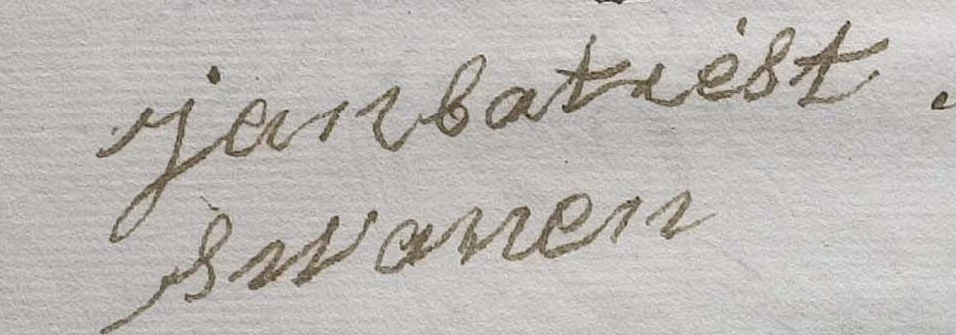 janbatiest
swanen